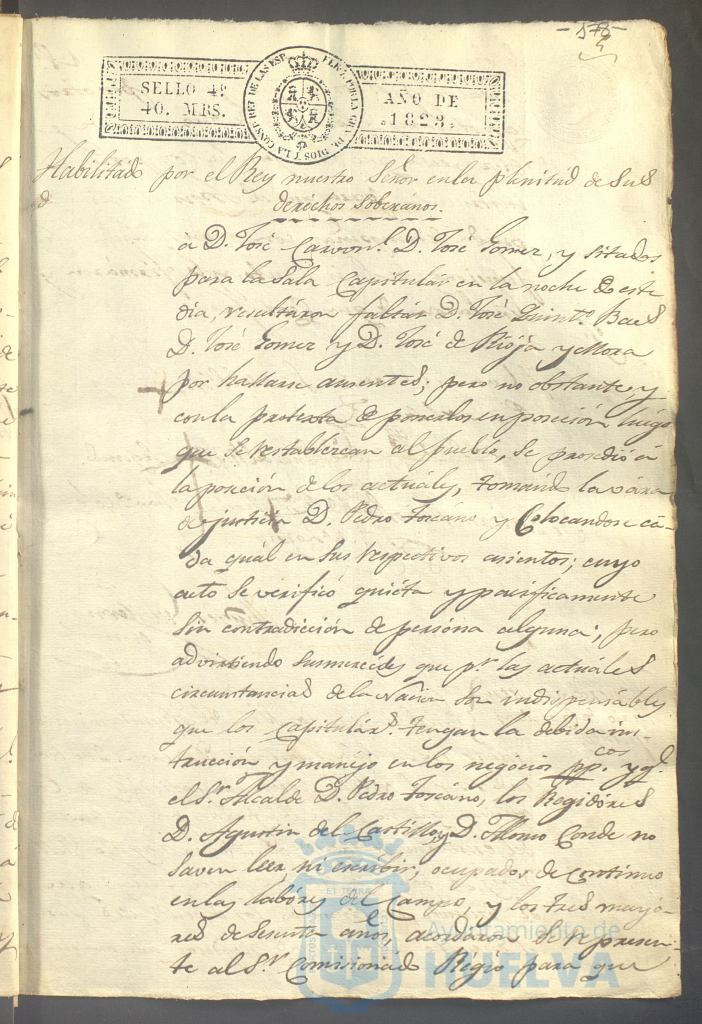 -578-
SELLO 4º
40. MRS.
AÑO DE
1823.
Habilitado por el Rey nuestro Señor en la plenitud de sus
derechos soberanos.
á D. José D. José Gomez, y sitados
para la Sala Capitular en la noche de este
dia, resultáron faltár D. José Quint.º Baes
D. José Gomez y D. José de Rioja y Mora
por hallarse ausentes; pero no obstante y
con la protexta de ponerlos en poseción luego
que se restablezcan al pueblo, se prosedió á
la poseción de los actuáles, tomando la vára
de justicia D. Pedro Toscano y Colocandose cá-
da quál en sus respectivos asientos; cuyo
acto se verificó quiéta y pacificamente
sin contradicción de persóna alguna; pero
advirtiendo susmercedes que pr. las actuáles
circunstancias de la Nación son indispensábles
que los Capituláres. tengan la debida ins-
trucción y manéjo en los negócios ppcos. y qe.
el Sr. Alcalde D. Pedro Toscáno, los Regidóres
D. Agustin del Castillo, y D. Alonso Conde no
saven leer, ni escribir, ocupados de continuo
en las labóres del Campo, y los tres mayó-
res de sesenta años, acordáron se represen-
te al Sr. Comisionado Regio para que
Ayuntamiento de
HUELVA